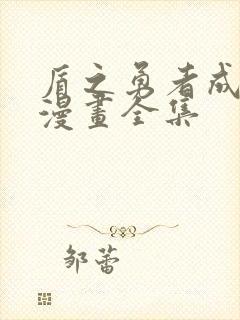 盾之勇者成
漫畫全集
邹蕾